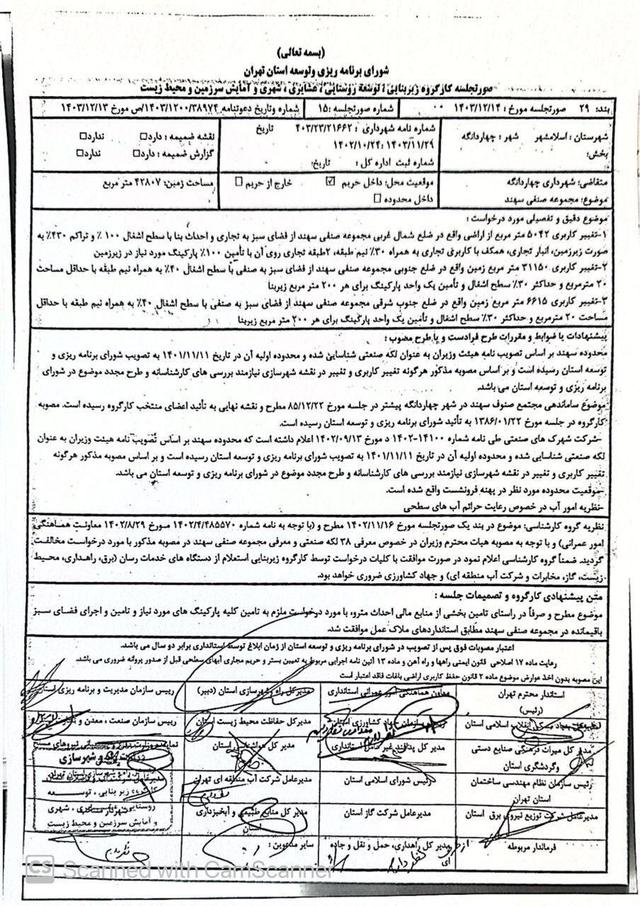 (بسمه تعالی)
شورای برنامه ریزی وتوسعه استان تهران
صورتجلسه کارگروه زیربنایی، توسعه روستایی، عشایری، شهری و آمایش سرزمین و محیط زیست
بند: ۲۹ صورتجلسه مورخ: ۱۴۰۳/۱۲/۱۴ شماره صورتجلسه: ۱۵ شماره وتاریخ دعوتنامه: ۱۴۰۳/۱۲۰۰/۳۸۹۷۴/ص مورخ ۱۴۰۳/۱۲/۱۳
شهرستان: اسلامشهر شهر: چهاردانگه
بخش:
شماره نامه شهرداری: ۴۰۳/۲۳/۲۱۶۶۲ تاریخ
۱۴۰۳/۱۱/۲۹ :۱۴۰۲/۱۰/۲۴
شماره ثبت اداره کل: تاریخ:
نقشه ضمیمه: دارد□ ندارد□
گزارش ضمیمه: دارد□ ندارد□
متقاضی: شهرداری چهاردانگه
موضوع: مجموعه صنفی سهند
موقعیت محل: داخل حریم ☑ خارج از حریم □
داخل محدوده □
مساحت زمین: ۴۲۸۰۷ متر مربع
موضوع دقیق و تفصیلی مورد درخواست:
۱-تغییر کاربری ۵۰۴۲ متر مربع از اراضی واقع در ضلع شمال غربی مجموعه صنفی سهند از فضای سبز به تجاری و احداث بنا با سطح اشغال ۱۰۰٪ و تراکم ۴۳۰٪ به
صورت زیرزمین، انبار تجاری، همکف با کاربری تجاری به همراه ۳۰٪ نیم طبقه، ۲طبقه تجاری روی آن با تأمین ۱۰۰٪ پارکینگ مورد نیاز در زیرزمین
۲-تغییر کاربری ۳۱۱۵۰ متر مربع زمین واقع در ضلع جنوبی مجموعه صنفی سهند از فضای سبز به صنفی با سطح اشغال ۴۰٪ به همراه نیم طبقه با حداقل مساحت
۲۰ مترمربع و حداکثر ۳۰٪ سطح اشغال و تأمین یک واحد پارکینگ برای هر ۲۰۰ متر مربع زیربنا
۳-تغییر کاربری ۶۶۱۵ متر مربع زمین واقع در ضلع جنوب شرقی مجموعه صنفی سهند از فضای سبز به صنفی با سطح اشغال ۴۰٪ به همراه نیم طبقه با حداقل
مساحت ۲۰ مترمربع و حداکثر ۳۰٪ سطح اشغال و تأمین یک واحد پارکینگ برای هر ۲۰۰ متر مربع زیربنا
پیشنهادات یا ضوابط و مقررات طرح فرادست و یا طرح مصوب:
محدوده سهند بر اساس تصویب نامه هیئت وزیران به عنوان لکه صنعتی شناسایی شده و محدوده اولیه آن در تاریخ ۱۴۰۱/۱۱/۱۱ به تصویب شورای برنامه ریزی و
توسعه استان رسیده است و بر اساس مصوبه مذکور هرگونه تغییر کاربری و تغییر در نقشه شهرسازی نیازمند بررسی های کارشناسانه و طرح مجدد موضوع در شورای
برنامه ریزی و توسعه استان می باشد.
موضوع ساماندهی مجتمع صنوف سهند در شهر چهاردانگه پیشتر در جلسه مورخ ۸۵/۱۲/۲۲ مطرح و نقشه نهایی به تأئید اعضای منتخب کارگروه رسیده است. مصوبه
کارگروه در جلسه مورخ ۱۳۸۶/۰۱/۲۲ به تأئید شورای برنامه ریزی و توسعه استان رسیده است.
-شرکت شهرک های صنعتی طی نامه شماره ۱۴۱۰۰-۱۴۰۲ د مورخ ۱۴۰۲/۰۹/۱۳ اعلام داشته است که محدوده سهند بر اساس تصویب نامه هیئت وزیران به عنوان
لکه صنعتی شناسایی شده و محدوده اولیه آن در تاریخ ۱۴۰۱/۱۱/۱۱ به تصویب شورای برنامه ریزی و توسعه استان رسیده است و بر اساس مصوبه مذکور هرگونه
تغییر کاربری و تغییر در نقشه شهرسازی نیازمند بررسی های کارشناسانه و طرح مجدد موضوع در شورای برنامه ریزی و توسعه استان می باشد.
-موقعیت محدوده مورد نظر در پهنه فرونشست واقع شده است.
-نظریه امور آب در خصوص رعایت حرائم آب های سطحی
نظریه گروه کارشناسی: موضوع در بند یک صورتجلسه مورخ ۱۴۰۲/۱۱/۱۶ مطرح و (با توجه به نامه شماره ۱۴۰۲/۴/۴۸۵۵۷۰ مورخ ۱۴۰۲/۸/۲۹ معاونت هماهنگی
امور عمرانی) و با توجه به مصوبه هیات محترم وزیران در خصوص معرفی ۳۸ لکه صنعتی و معرفی مجموعه صنفی سهند در مصوبه مذکور با مورد درخواست مخالفت
گردید. ضمناً گروه کارشناسی اعلام نمود در صورت موافقت با کلیات درخواست توسط کارگروه زیربنایی استعلام از دستگاه های خدمات رسان (برق، راهداری، محیط
زیست، گاز، مخابرات و شرکت آب منطقه ای) و جهاد کشاورزی ضروری خواهد بود.
متن پیشنهادی کارگروه و تصمیمات جلسه:
موضوع مطرح و صرفاً در راستای تامین بخشی از منابع مالی احداث مترو، با مورد درخواست ملزم به تامین کلیه پارکینگ های مورد نیاز و تامین و اجرای فضای سبز
باقیمانده در مجموعه صنفی سهند مطابق استانداردهای ملاک عمل موافقت شد.
اعتبار مصوبات فوق پس از تصویب در شورای برنامه ریزی و توسعه استان از زمان ابلاغ توسط استانداری برابر دو سال می باشد.
رعایت ماده ۱۷ اصلاحی قانون ایمنی راهها و راه آهن و ماده ۱۳ آئین نامه اجرایی مربوط به تعیین بستر و حریم مجاری آبهای سطحی قبل از صدور پروانه ضروری می باشد.
این مصوبه بدون اخذ موضوع ماده ۲ قانون حفظ کاربری اراضی باغات فاقد اعتبار است
استاندار محترم تهران
(رئیس)
معاون هماهنگی امور عمرانی استانداری
مدیرکل راه و شهرسازی استان (دبیر)
رییس سازمان مدیریت و برنامه ریزی استان
مدیرکل بنیاد مسکن انقلاب اسلامی استان
رییس سازمان جهاد کشاورزی استان
مدیرکل حفاظت محیط زیست استان
رییس سازمان صنعت، معدن و
مدیر کل میراث فرهنگی صنایع دستی
وگردشگری استان
مدیر کل پدافند غیر عامل استانداری
مدیر کل
راه و شهرسازی
رئیس سازمان نظام مهندسی ساختمان
استان تهران
رئیس شورای اسلامی استان
مدیرعامل شرکت آب منطقه ای تهران
کارگروه زیربنایی، توسعه
روستایی، عشایری، شهری
و آمایش سرزمین و محیط زیست
مدیرعامل شرکت توزیع نیروی برق استان
مدیرعامل شرکت گاز استان
مدیر کل منابع طبیعی و آبخیزداری
استان
فرماندار مربوطه
مدیر کل راهداری، حمل و نقل و جاده
ای
سایر مدعوین:
CS Scanned with CamScanner